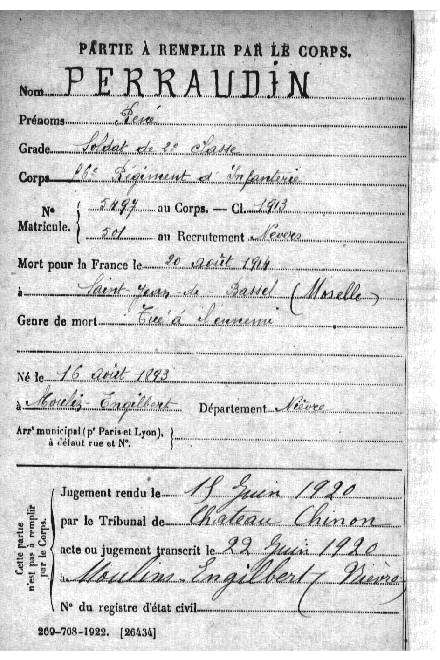 PARTIE À REMPLIR PAR LE CORPS.
Nom PERRAUDIN
Prénoms René
Grade Soldat de 2e classe
Corps Régiment d'Infanterie
N° Matricule. { 5497 au Corps. — Cl. 1913
501 au Recrutement Nevers
Mort pour la France le 20 août 1914
à Saint Jean de Bassel (Moselle)
Genre de mort Tué à l'ennemi
Né le 16 août 1893
à Moulins-Engilbert Département Nièvre
Arrt municipal (pr Paris et Lyon), à défaut rue et N°. }
Cette partie n'est pas à remplir par le Corps.
Jugement rendu le 15 Juin 1920
par le Tribunal de Chateau Chinon
acte ou jugement transcrit le 22 Juin 1920
à Moulins-Engilbert (Nièvre)
N° du registre d'état civil
269-708-1922. [26434]